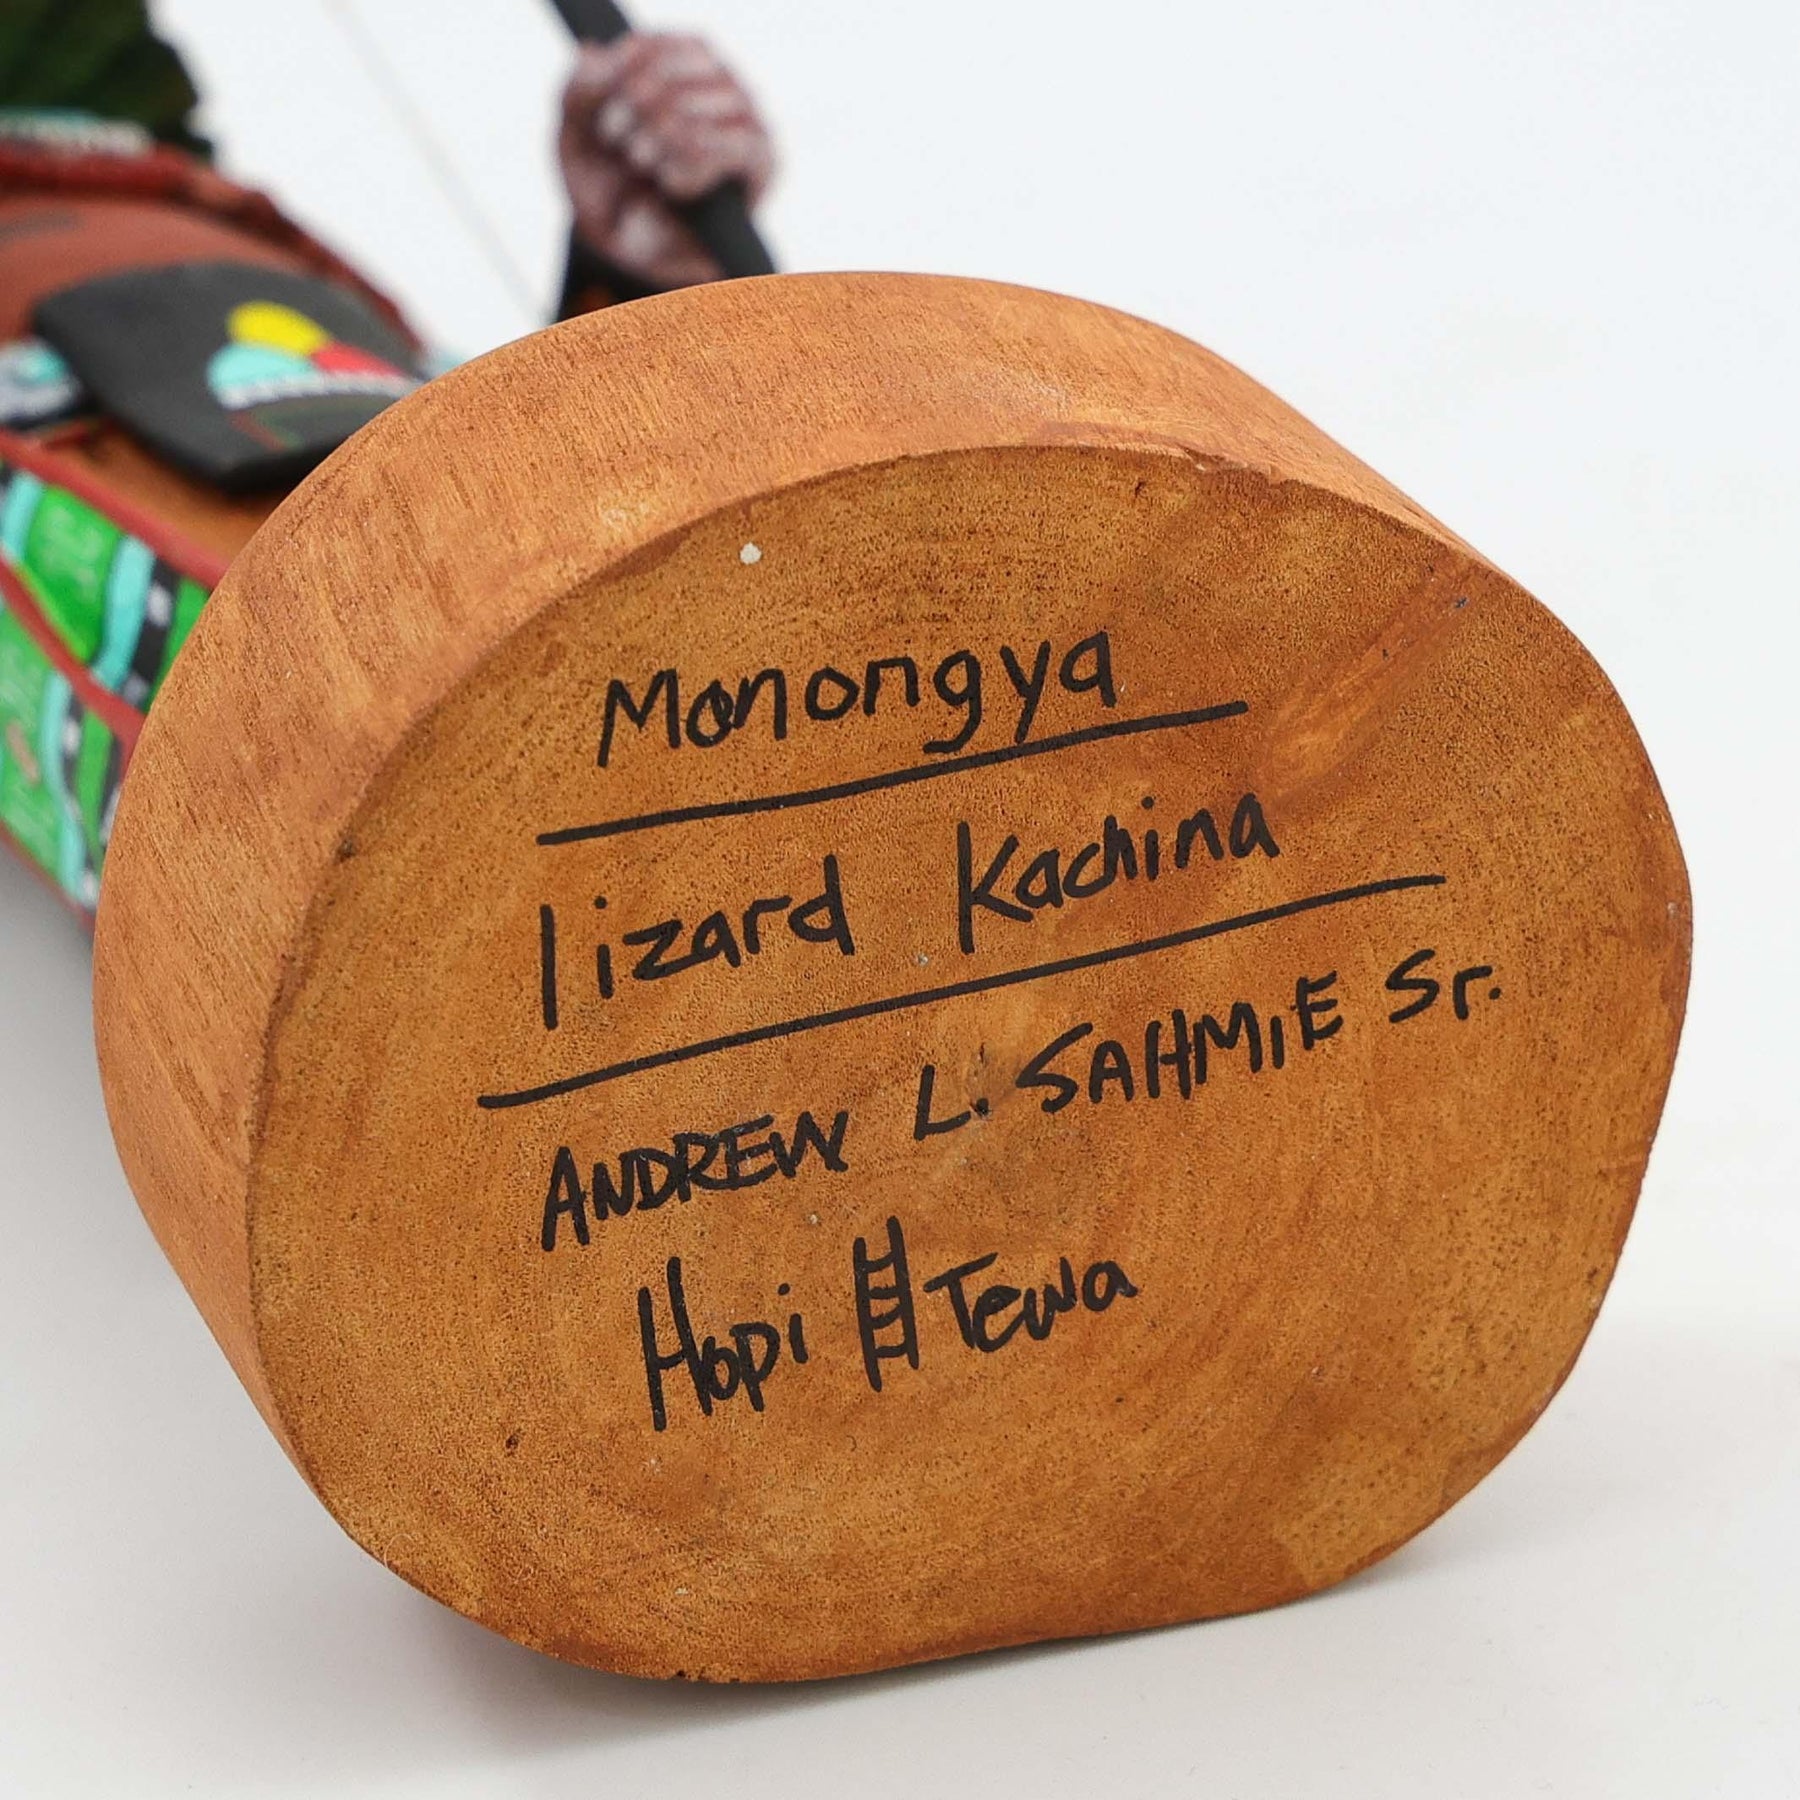 Monongya
lizard Kachina
ANDREW L. SAHMIE Sr.
Hopi Tewa